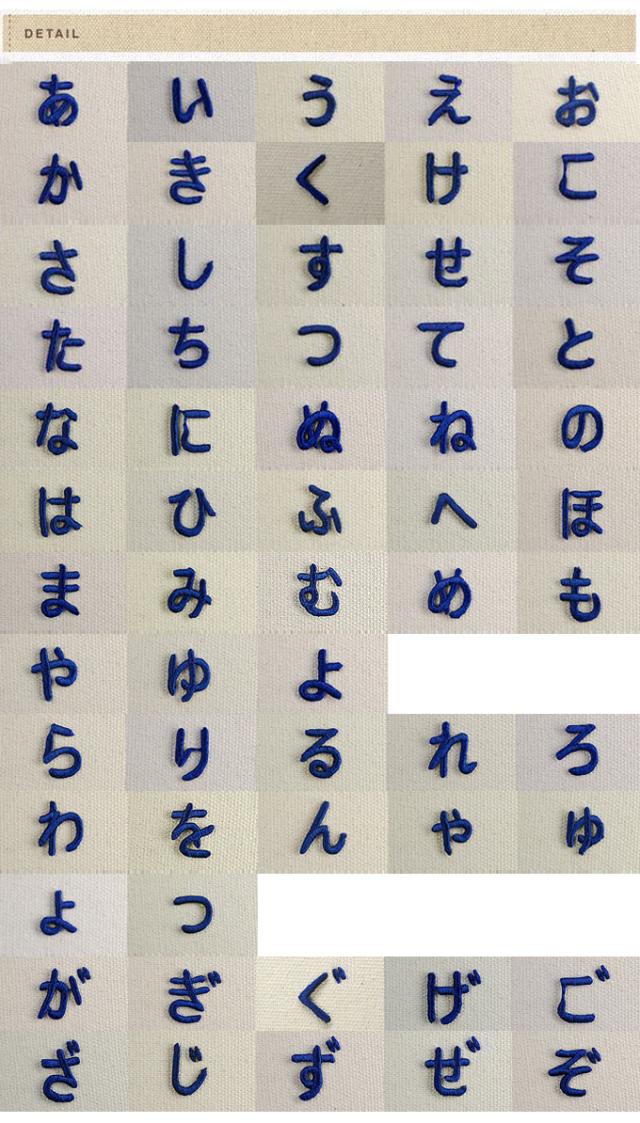 DETAIL
あ い う え お
か き く け こ
さ し す せ そ
た ち つ て と
な に ぬ ね の
は ひ ふ へ ほ
ま み む め も
や ゆ よ
ら り る れ ろ
わ を ん ゃ ゅ
ょ っ
が ぎ ぐ げ ご
ざ じ ず ぜ ぞ